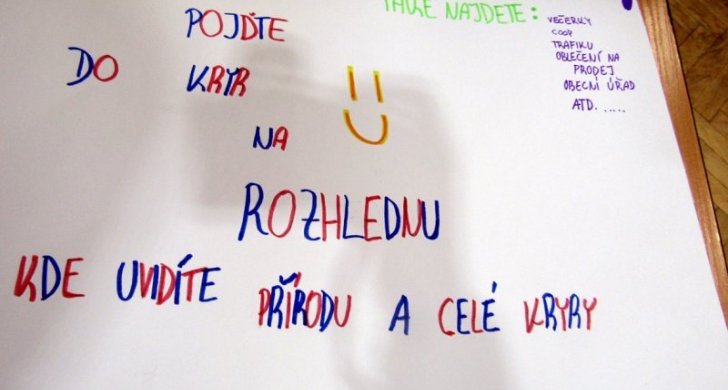 POJĎTE
DO KRYR
NA
ROZHLEDNU
KDE UVIDÍTE PŘÍRODU A CELÉ KRYRY
NAJDETE:
VEČERKY
COOP
TRAFIKU
OBLEČENÍ NA
PRODEJ
OBECNÍ ÚŘAD
ATD. .....